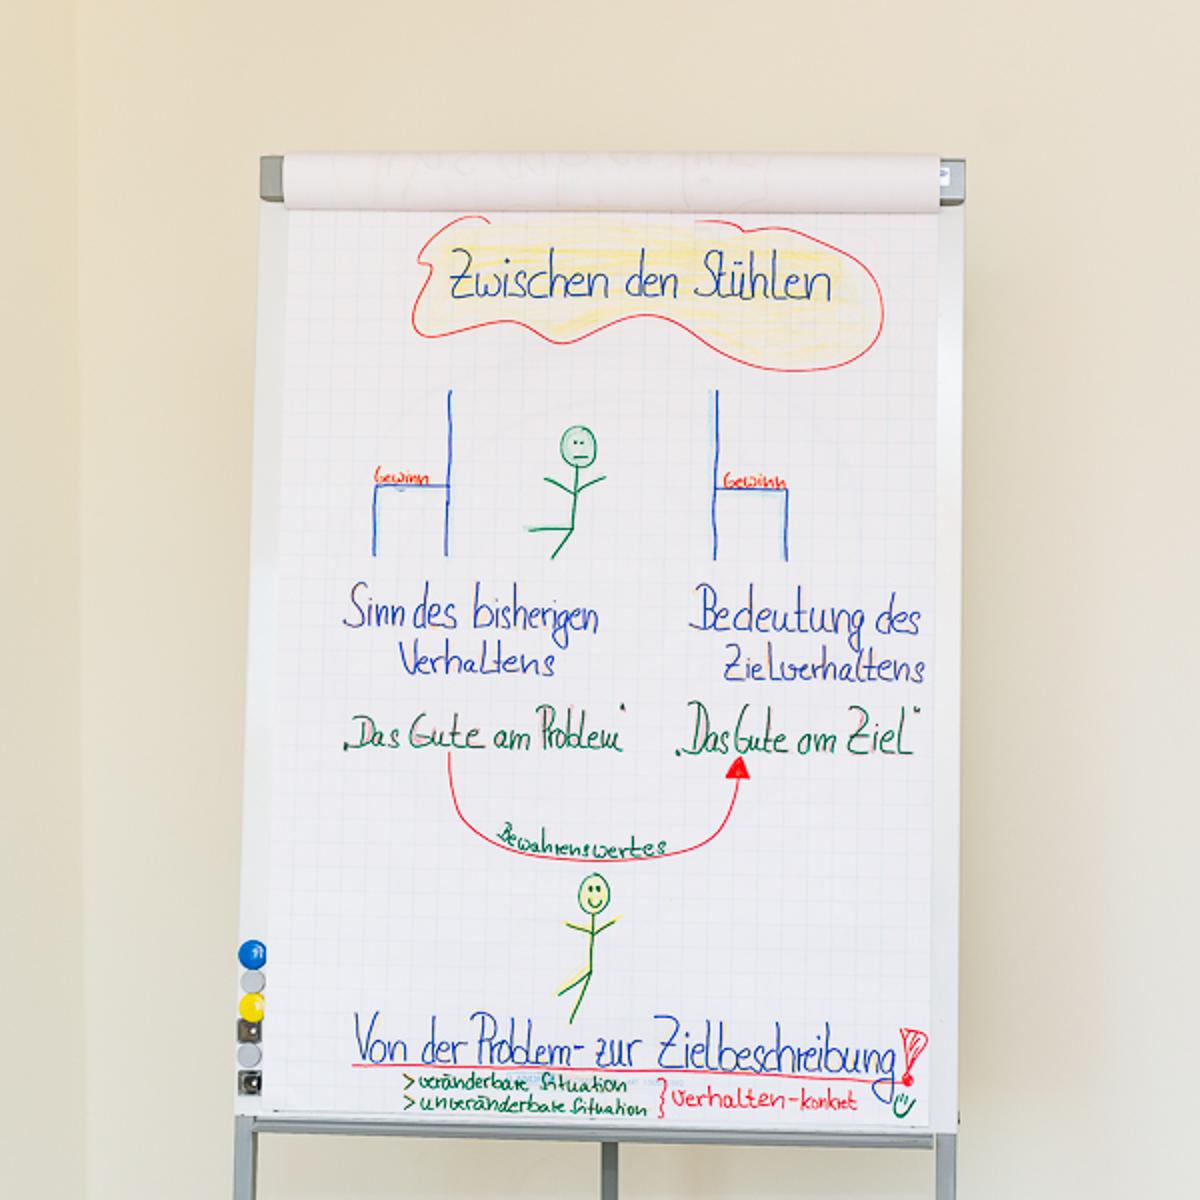 Zwischen den Stühlen
Gewinn
Gewinn
Sinn des bisherigen
Verhaltens
Bedeutung des
Zielverhaltens
„Das Gute am Problem“
„Das Gute am Ziel“
Bewahrenswertes
Von der Problem- zur Zielbeschreibung!
> veränderbare Situation
> unveränderbare Situation
} Verhalten-konkret